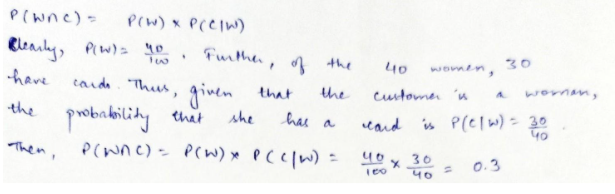 P(W∩C) = P(W) × P(C|W)
Clearly, P(W) = 40/100 . Further, of the 40 women, 30
have cards. Thus, given that the customer is a woman,
the probability that she has a card is P(C|W) = 30/40 .
Then, P(W∩C) = P(W) × P(C|W) = 40/100 × 30/40 = 0.3